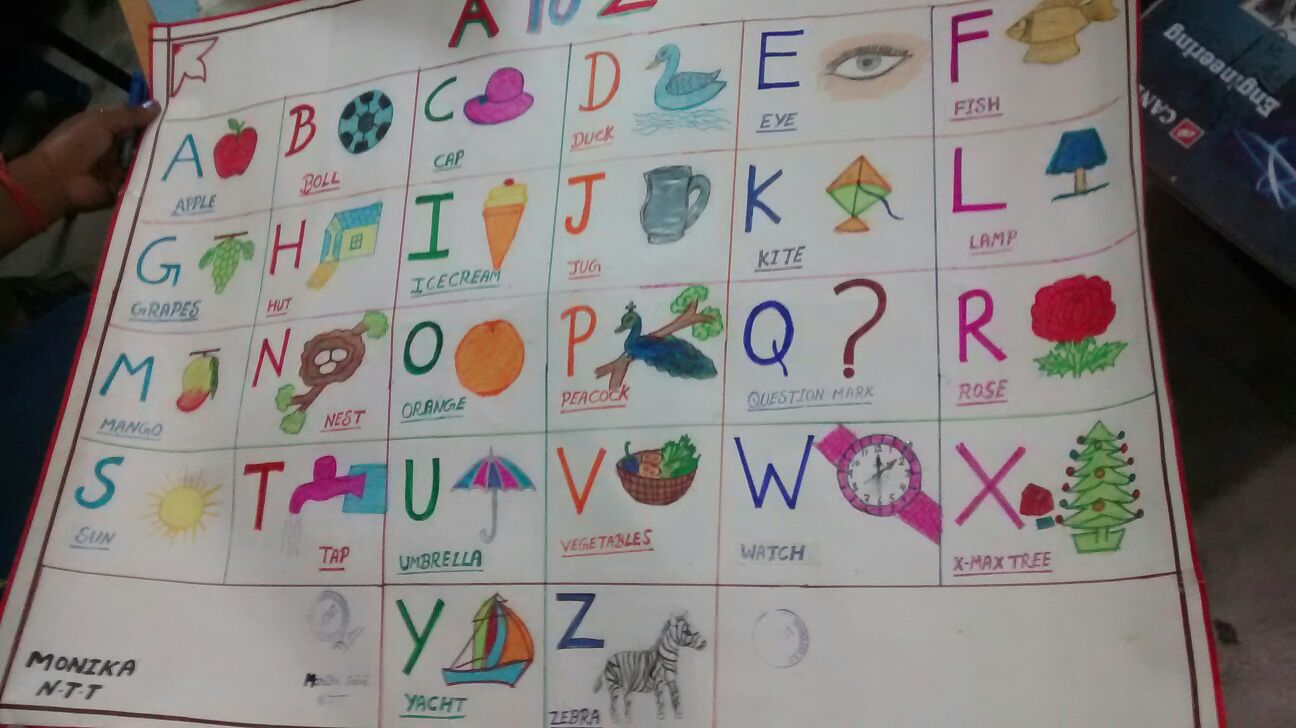 A TO Z
A
APPLE
B
BOLL
C
CAP
D
DUCK
E
EYE
F
FISH
G
GRAPES
H
HUT
I
ICECREAM
J
JUG
K
KITE
L
LAMP
M
MANGO
N
NEST
O
ORANGE
P
PEACOCK
Q
?
QUESTION MARK
R
ROSE
S
SUN
T
TAP
U
UMBRELLA
V
VEGETABLES
W
WATCH
X
X-MAX TREE
Y
YACHT
Z
ZEBRA
MONIKA
N·T·T
Engineering